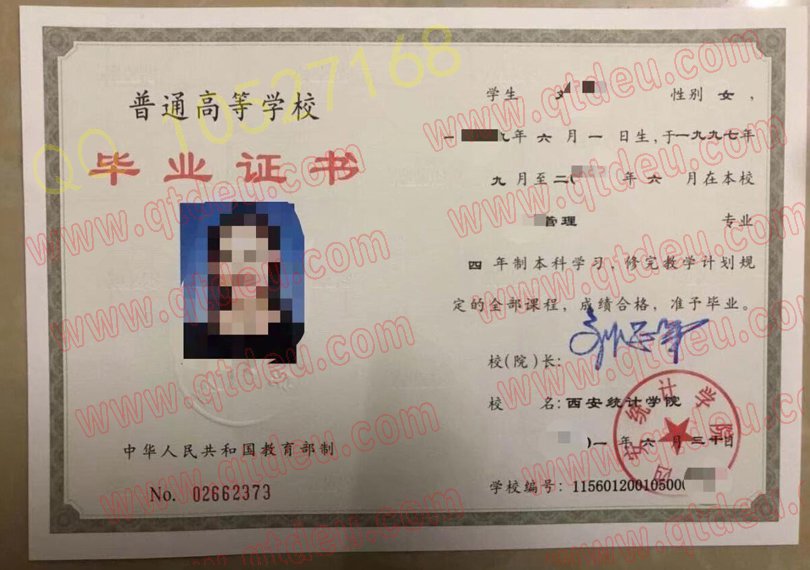 普通高等学校
毕业证书
中华人民共和国教育部制
No. 02662373
学生 性别 女，
一 九年 六 月 一 日生，于一九九七年
九 月至二 年 六 月在本校
管理 专业
四 年制本科学习，修完教学计划规
定的全部课程，成绩合格，准予毕业。
校(院)长：
校 名：西安统计学院
一 年 六 月 三十日
学校编号：115601200105000
西安统计学院
QQ 10527168
www.qtdeu.com
www.qtdeu.com
www.qtdeu.com
www.qtdeu.com
www.qtdeu.com
www.qtdeu.com
www.qtdeu.com
www.qtdeu.com